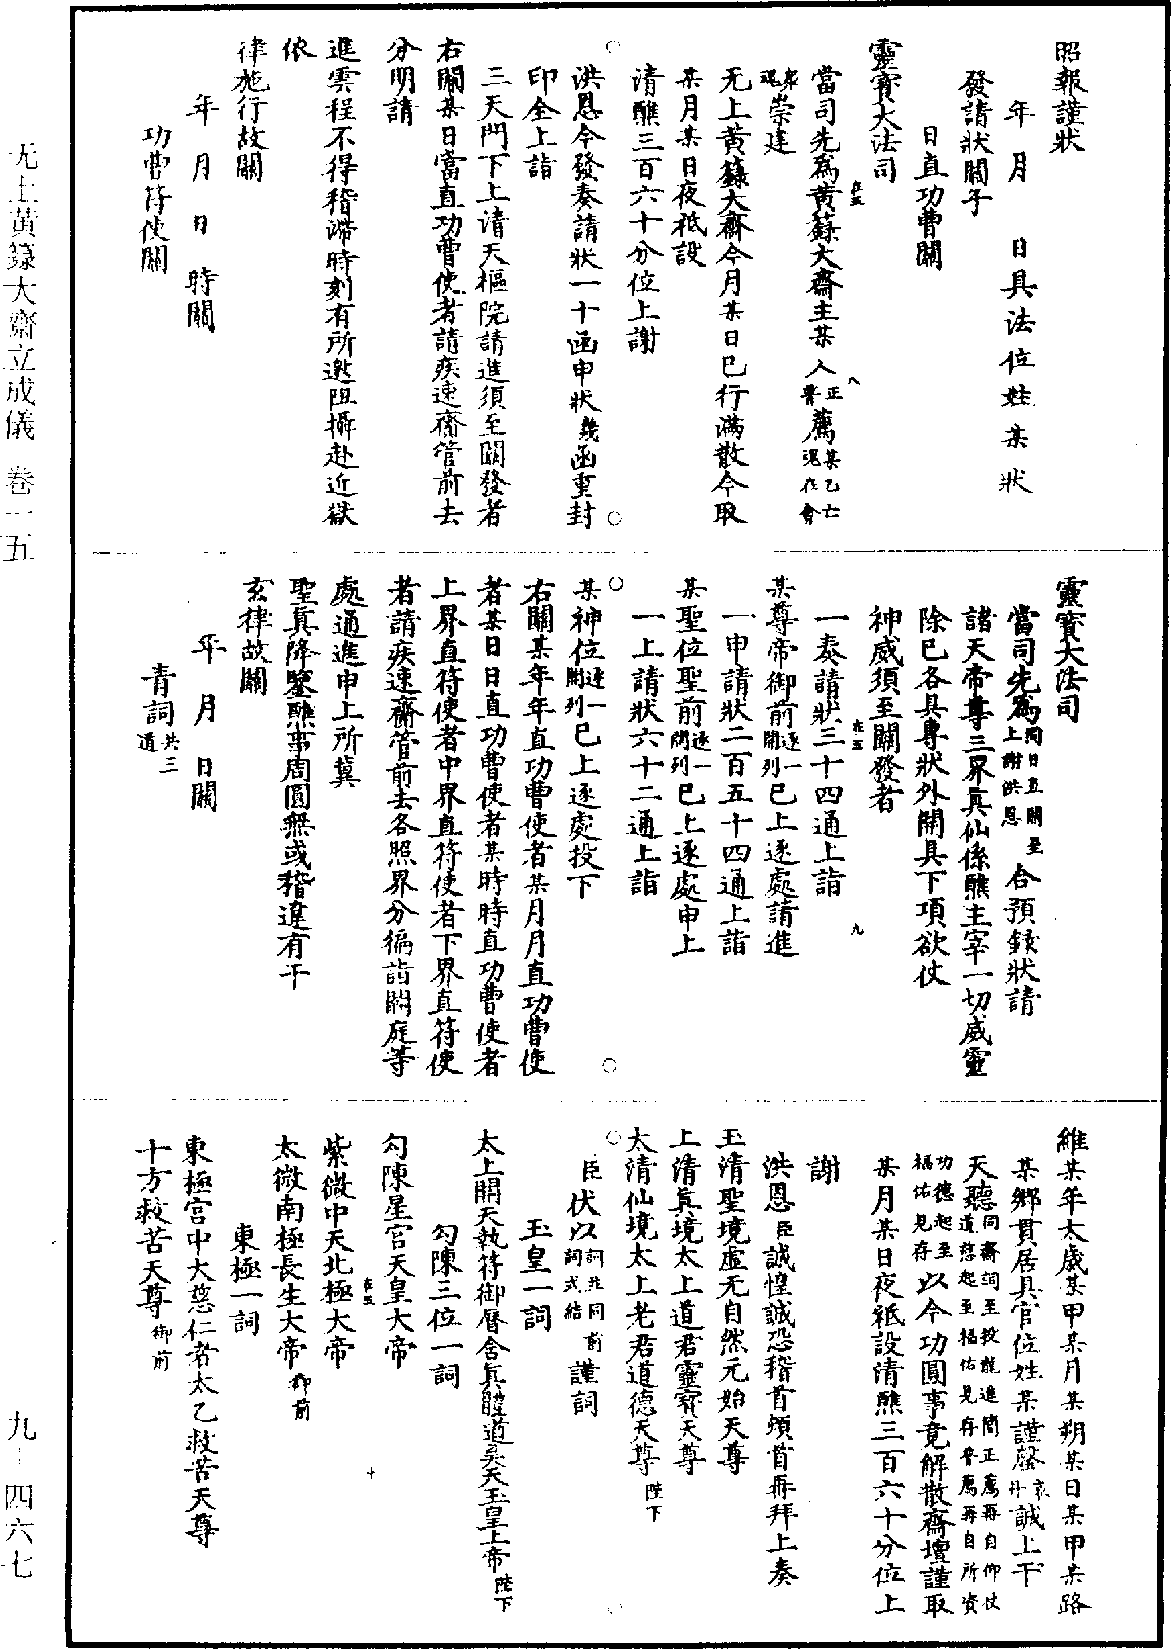 昭報謹狀
年　月　日具法位姓某狀
發請狀關子
日直功曹關
靈寶大法司
當司先爲黃籙大齋主某人正薦某乙亡普魂在會
衆魂崇建
无上黃籙大齋今月某日已行滿散今取
某月某日夜祇設
清醮三百六十分位上謝
洪恩今發奏請狀一十函申狀幾函重封
印全上詣
三天門下上清天樞院請進須至關發者
右關某日當直功曹使者請疾速齎管前去
分明請
進雲程不得稽滯時刻有所邀阻攝赴近獄
依
律施行故關
年　月　日　時關
功曹符使關
靈寶大法司
當司先爲同日直關至上謝洪恩合預錄狀請
諸天帝尊三界真仙係醮主宰一切威靈
除已各具專狀外開具下項欲仗
神威須至關發者
一奏請狀三十四通上詣
某尊帝御前逐一開列已上逐處請進
一申請狀二百五十四通上詣
某聖位聖前逐一開列已上逐處申上
一上請狀六十二通上詣
某神位逐一開列已上逐處投下
右關某年年直功曹使者某月月直功曹使
者某日日直功曹使者某時時直功曹使者
上界直符使者中界直符使者下界直符使
者請疾速齎管前去各照界分徧詣闕庭等
處通進申上所冀
聖真降鑒醮事周圓無或稽違有干
玄律故關
年　月　日關
青詞共三道
維某年太歲某甲某月某朔某日某甲某路
某鄉貫居具官位姓某謹罄丹衷誠上干
天聽同齋詞至投龍進簡正薦再自仰仗道慈起至福佑見存普薦再自所資
功德起至福佑見存以今功圓事竟解散齋壇謹取
某月某日夜祇設清醮三百六十分位上
謝
洪恩臣誠惶誠恐稽首頓首再拜上奏
玉清聖境虛无自然元始天尊
上清真境太上道君靈寶天尊
太清仙境太上老君道德天尊陛下
臣伏以詞並同前詞式結謹詞
玉皇一詞
太上開天執符御曆含真體道昊天玉皇上帝陛下
勾陳三位一詞
勾陳星宮天皇大帝
紫微中天北極大帝
太微南極長生大帝御前
東極一詞
東極宮中大慈仁者太乙救苦天尊
十方救苦天尊御前
无上黃籙大齋立成儀　卷一五
九－四六七